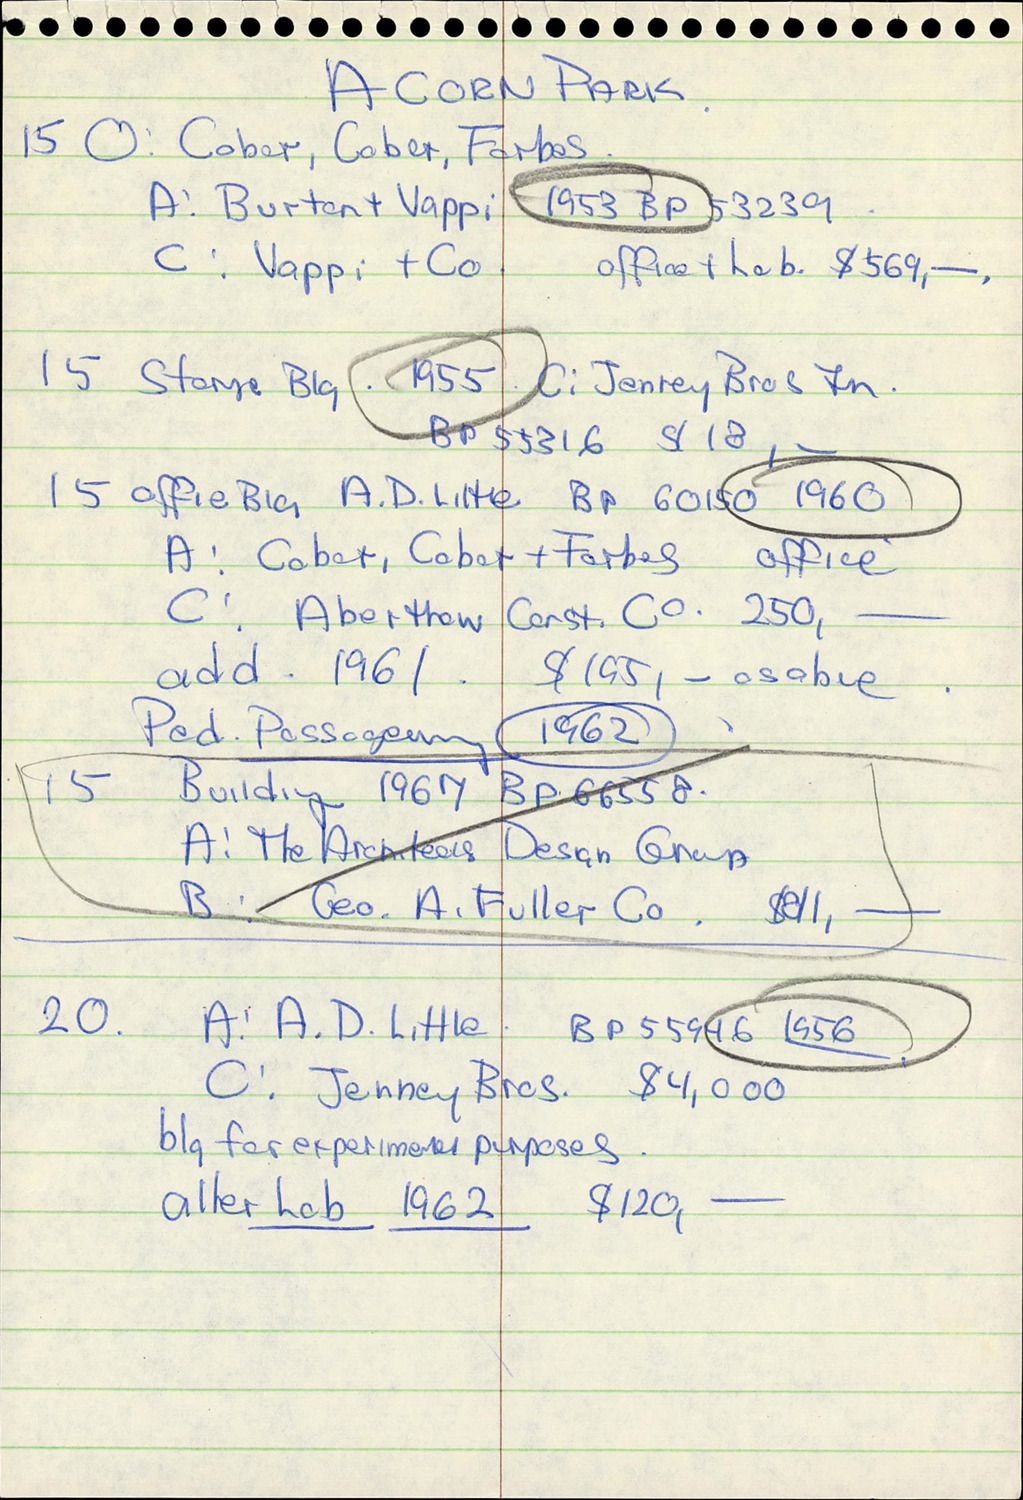 ACORN PARK.
15 O: Cabot, Cabot, Forbes.
A: Burton + Vappi 1953 BP 53239.
C: Vappi + Co. office + Lab. $569,—.
15 Storage Blg. 1955. C: Jenney Bros In.
BP 55316 $18,—
15 office Blg A.D. Little BP 60150 1960
A: Cabot, Cabot + Forbes office
C: Aberthaw Const. Co. 250, —
add. 1961. $195, — as above.
Ped. Passageway 1962
15 Building 1967 BP 66558.
A: The Architects Design Group
B: Geo. A. Fuller Co. $811, —
20. A: A.D. Little. BP 55946 1956.
C: Jenney Bros. $4,000
blg for experimental purposes.
alter Lab 1962 $120, —